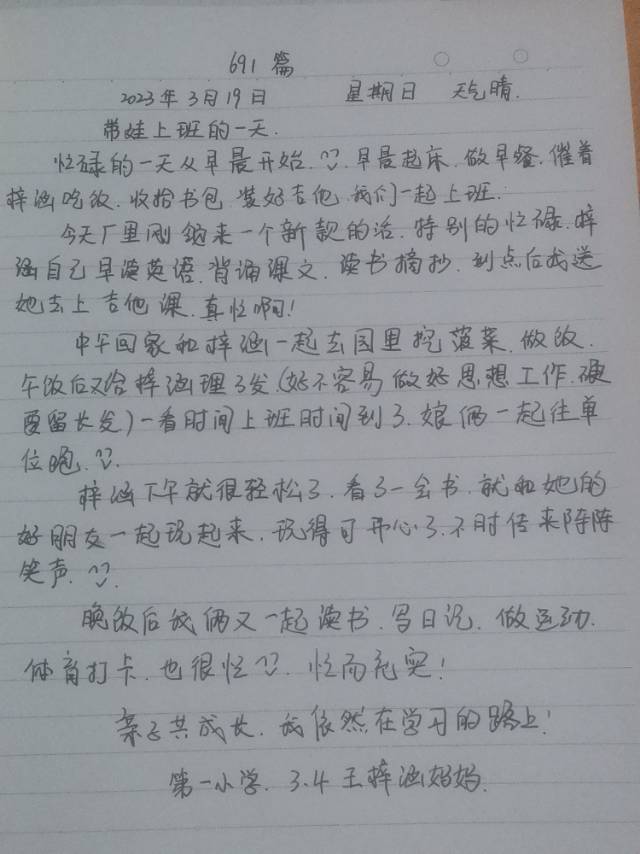 691篇
2023年3月19日 星期日 天气晴.
带娃上班的一天.
忙碌的一天从早晨开始.早晨起床.做早餐.催着
梓涵吃饭.收拾书包.装好吉他.我们一起上班.
今天厂里刚纳来一个新款的活.特别的忙碌.梓
涵自己早读英语.背诵课文.读书摘抄.到点后我送
她去上吉他课.真忙啊!
中午回家和梓涵一起去园里挖菠菜.做饭.
午饭后又给梓涵理了发.(好不容易做好思想工作.硬
要留长发)一看时间上班时间到了.娘俩一起往单
位跑.
梓涵下午就很轻松了.看了一会书.就和她的
好朋友一起玩起来.玩得可开心了.不时传来阵阵
笑声.
晚饭后我俩又一起读书.写日记.做运动.
体育打卡.也很忙.忙而充实!
亲子共成长.我依然在学习的路上!
第一小学.3.4王梓涵妈妈.